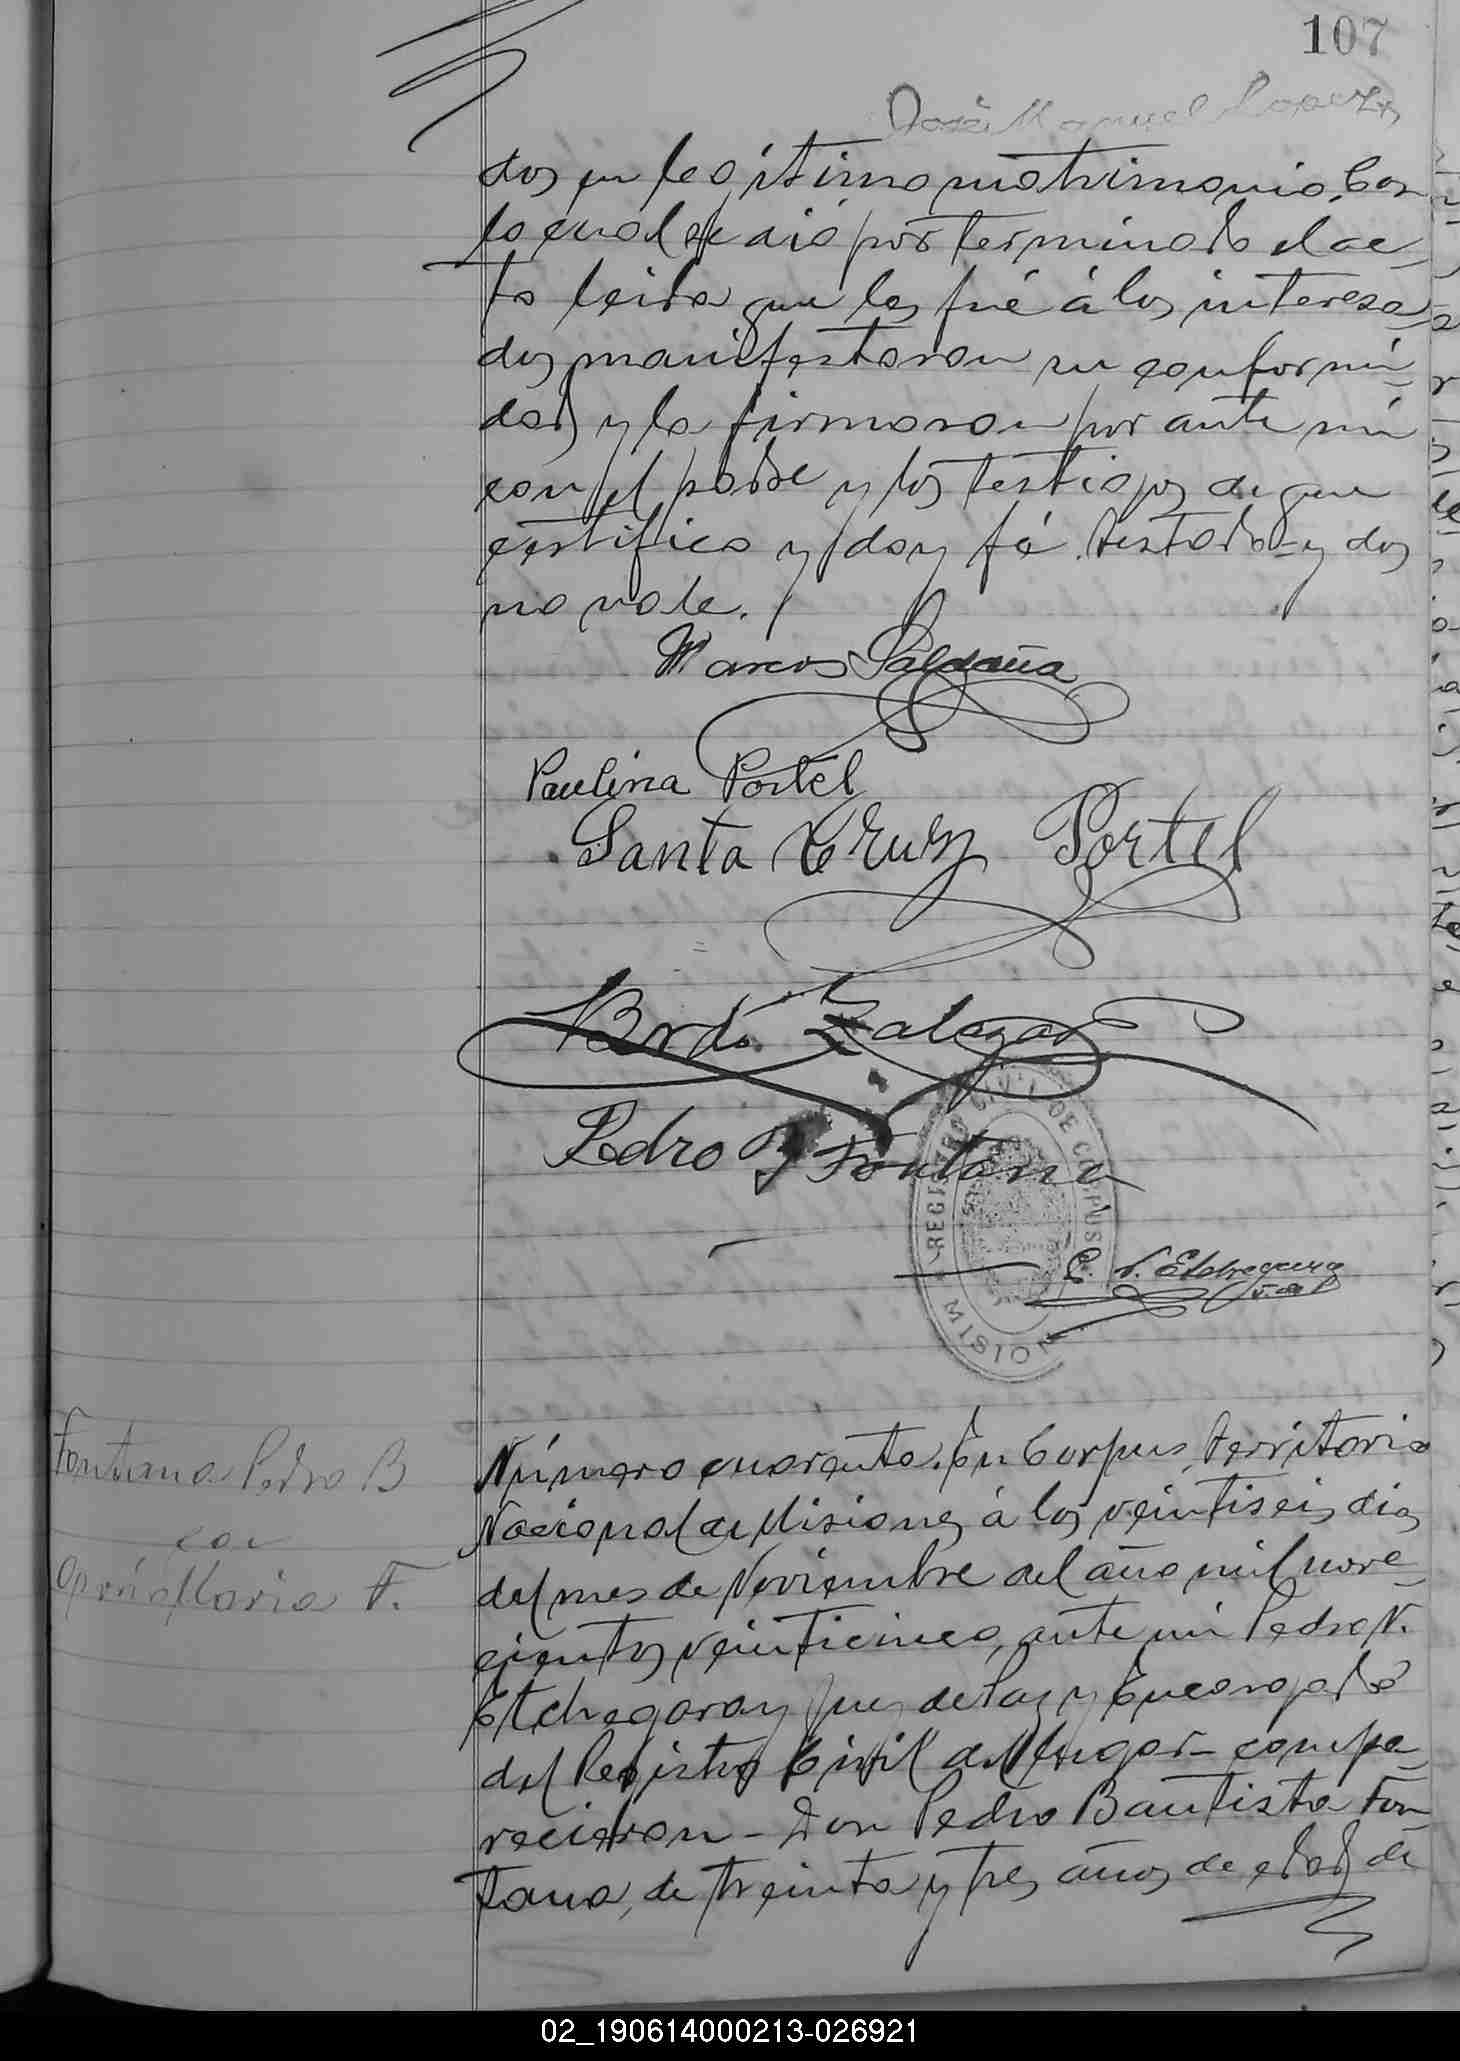 107
José Manuel Lopez
dos en legítimo matrimonio. Con
lo cual se dió por terminado el ac-
to leida que les fué á los interesa-
dos manifestaron su conformi-
dad y la firmaron por ante mi
con el padre y los testigos de que
certifico y doy fé. Testado-y dos
no vale.
Marcos Saldaña
Paulina Portel
Santa Cruz Portel
Brdo. Zalazar
Pedro B Fontana
REGISTRO CIVIL DE CORPUS
MISIONES
P. N. Etchegaray
J. de P
Fontana Pedro B
con
Maria F.
Número cuarenta. En Corpus, Territorio
Nacional de Misiones á los veintiseis dias
del mes de Noviembre del año mil nove-
cientos veinticinco, ante mi Pedro N.
Etchegaray Juez de Paz y Encargado
del Registro Civil del lugar- compa-
recieron - Don Pedro Bautista Fon-
tana, de treinta y tres años de edad de
02_190614000213-026921